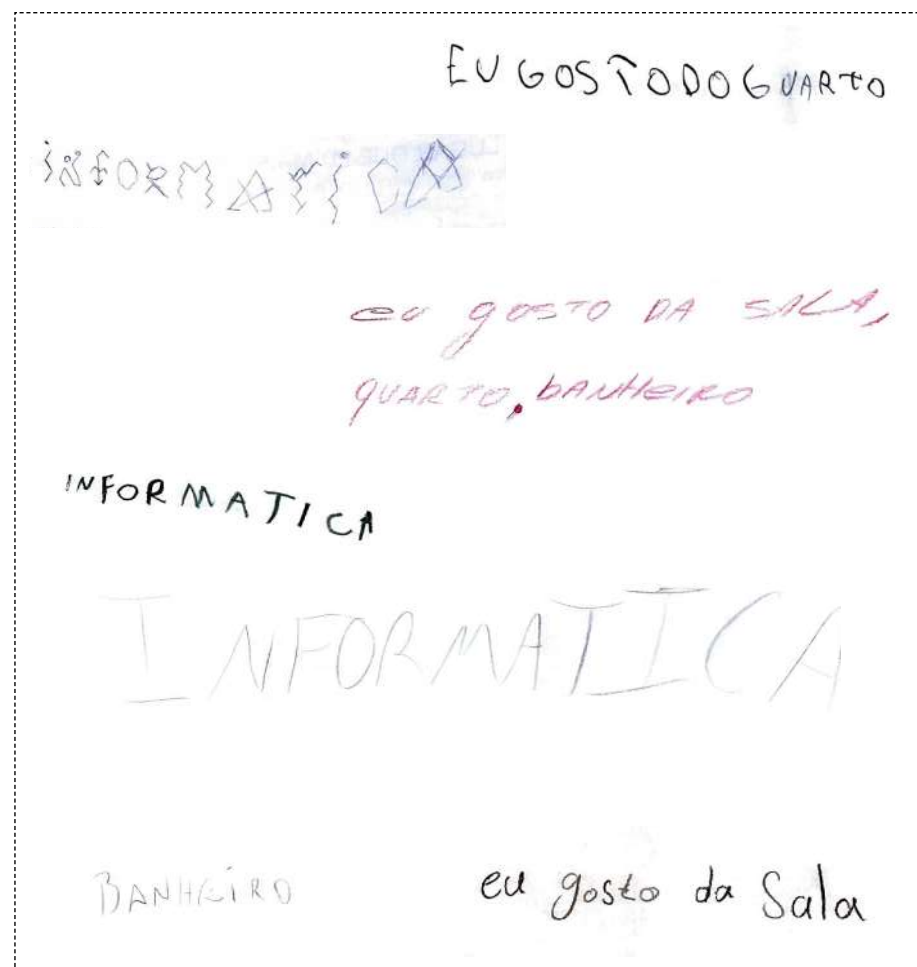 EU GOSTODOGUARTO
iNFORMATiCA
eu gosto DA SALA,
quARTO, bANHeIRO
INFORMATICA
INFORMATICA
BANHEiRO
eu gosto da Sala